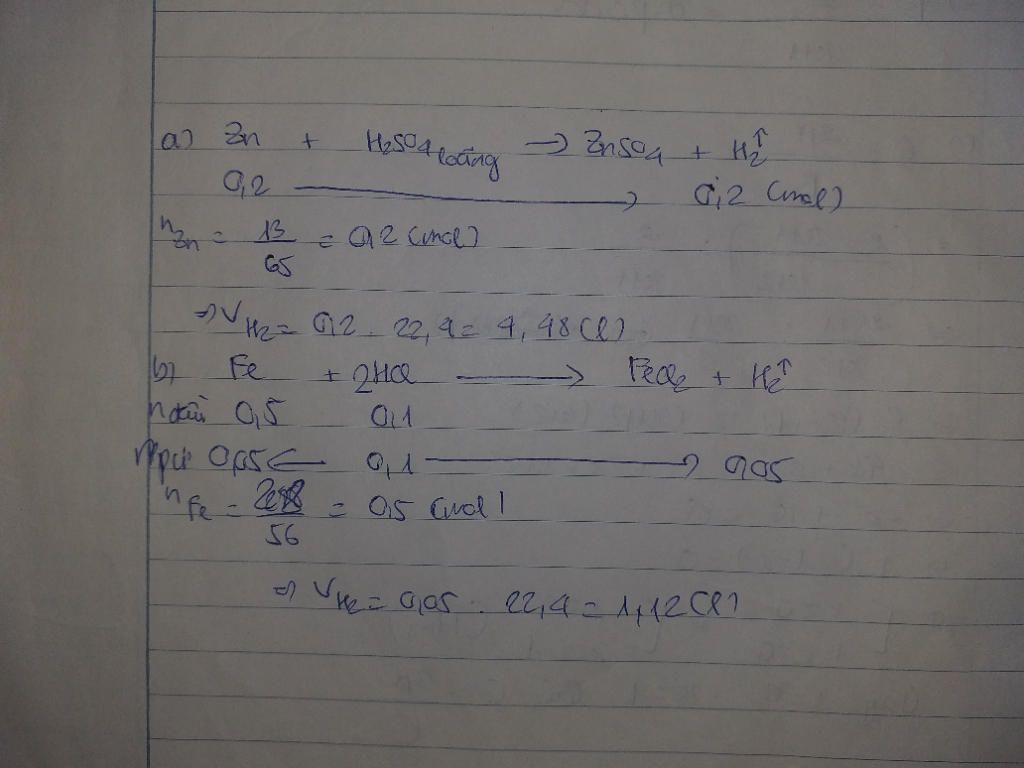 a) Zn + H₂SO₄ loãng → ZnSO₄ + H₂↑
0,2 → 0,2 (mol)
nZn = 13/65 = 0,2 (mol)
⇒ VH₂ = 0,2 . 22,4 = 4,48 (l)
b) Fe + 2HCl → FeCl₂ + H₂↑
n đầu 0,5 0,1
n pư 0,05 ← 0,1 → 0,05
nFe = /56 = 0,5 (mol)
⇒ VH₂ = 0,05 . 22,4 = 1,12 (l)